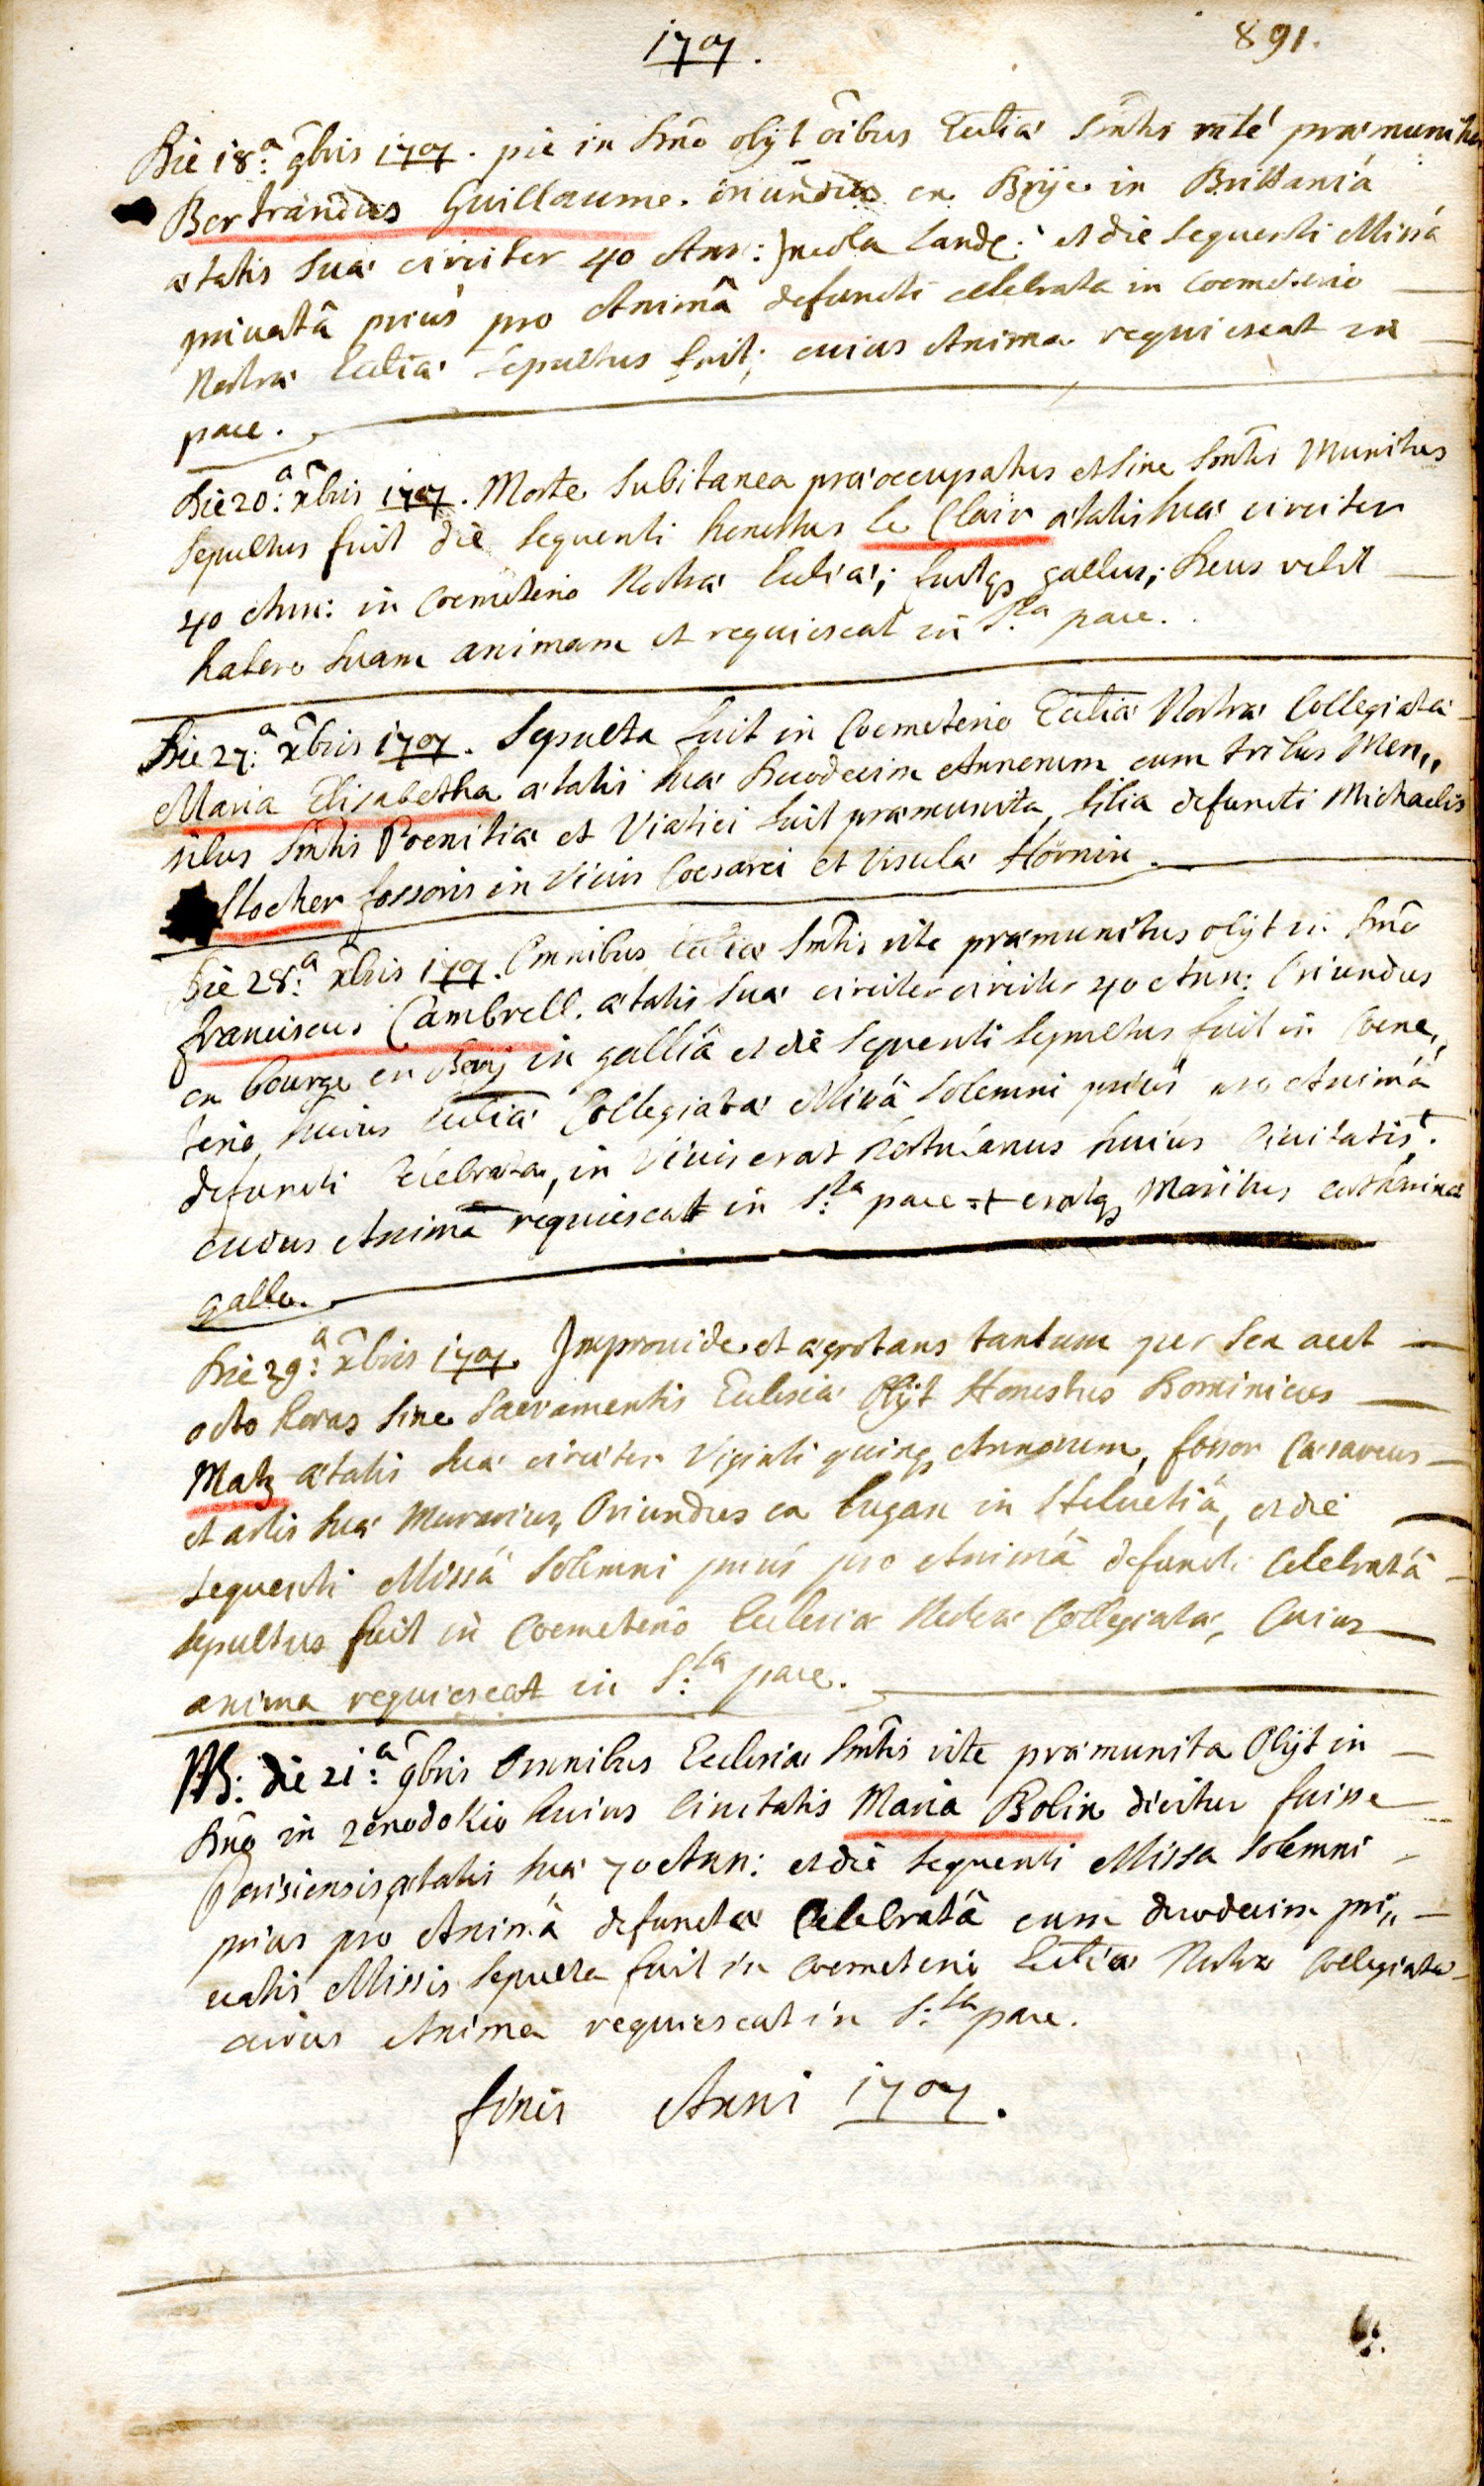 1707. 891.
Die 18.a 9bris 1707. pie in Dno obijt oibus Eccliae Smtis rite praemunitus
Bertrandus Guillaume. oriundus ex Brije in Brittaniâ
aetatis Suae circiter 40 Ann: Incola Land: et die Sequenti Missâ
privatâ prius pro Animâ defuncti celebrata in Coemeterio
Nostrae Eccliae Sepultus fuit; cuius Anima requiescat in
pace.
Die 20.a Xbris 1707. Morte Subitanea praeoccupatus et Sine Smtis Munitus
Sepultus fuit die Sequenti honestus le Clair aetatis Suae circiter
40 Ann: in Coemeterio Nostrae Eccliae; fuitq gallus; Deus velit
habere Suam animam et requiescat in S:ta pace.
Die 27.a Xbris 1707. Sepulta fuit in Coemeterio Eccliae Nostrae Collegiatae
Maria Elisabetha aetatis Suae Duodecim Annorum cum tribus Men,,
sibus Smtis Poenitiae et Viatici fuit praemunita, filia defuncti Michaelis
Stocher fossoris in Vivis Coesarei et Ursula Hörnin.
Die 28.a Xbris 1707. Omnibus Eccliae Smtis rite praemunitus obijt in Dno
franciscus Cambrell. aetatis Suae circiter circiter 40 Ann: Oriundus
ex bourge en Berij in galliâ et die Sequenti Sepultus fuit in Coeme,,
terio huius Eccliae Collegiatae Missâ Solemni prius pro Animâ
defuncti Celebrata, in Vivis erat hortulanus huius Civitatis +.
cuius Anima requiescat in S:ta pace + eratq Maritus Catharinae
galle.
Die 29.a Xbris 1707. Improvide et aegrotans tantum per Sex aut
octo horas Sine Sacramentis Ecclesiae Obijt Honestus Dominicus
Matz aetatis Suae circiter Viginti quinq Annorum, fossor Caesareus
et artis Suae Murarius, Oriundus ex lugan in Helvetiâ, et die
Sequenti Missâ Solemni prius pro Animâ defuncti Celebratâ
Sepultus fuit in Coemeterio Ecclesiae Nostrae Collegiatae, Cuius
anima requiescat in S:ta pace.
NB: die 21.a 9bris Omnibus Ecclesiae Smtis rite praemunita Obijt in
Dno in xenodokio huius Civitatis Maria Bolin dicitur fuisse
Parisiensis aetatis Suae 70 Ann: et die Sequenti Missa Solemni
prius pro Animâ defunctae Celebratâ cum duodecim pri,,
vatis Missis Sepulta fuit in Coemeterio Eccliae Nostrae Collegiatae
cuius Anima requiescat in S:ta pace.
finis Anni 1707.